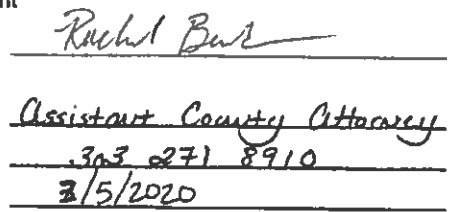 nt
Rachel
Assistant County Attorney
303 271 8910
/5/2020